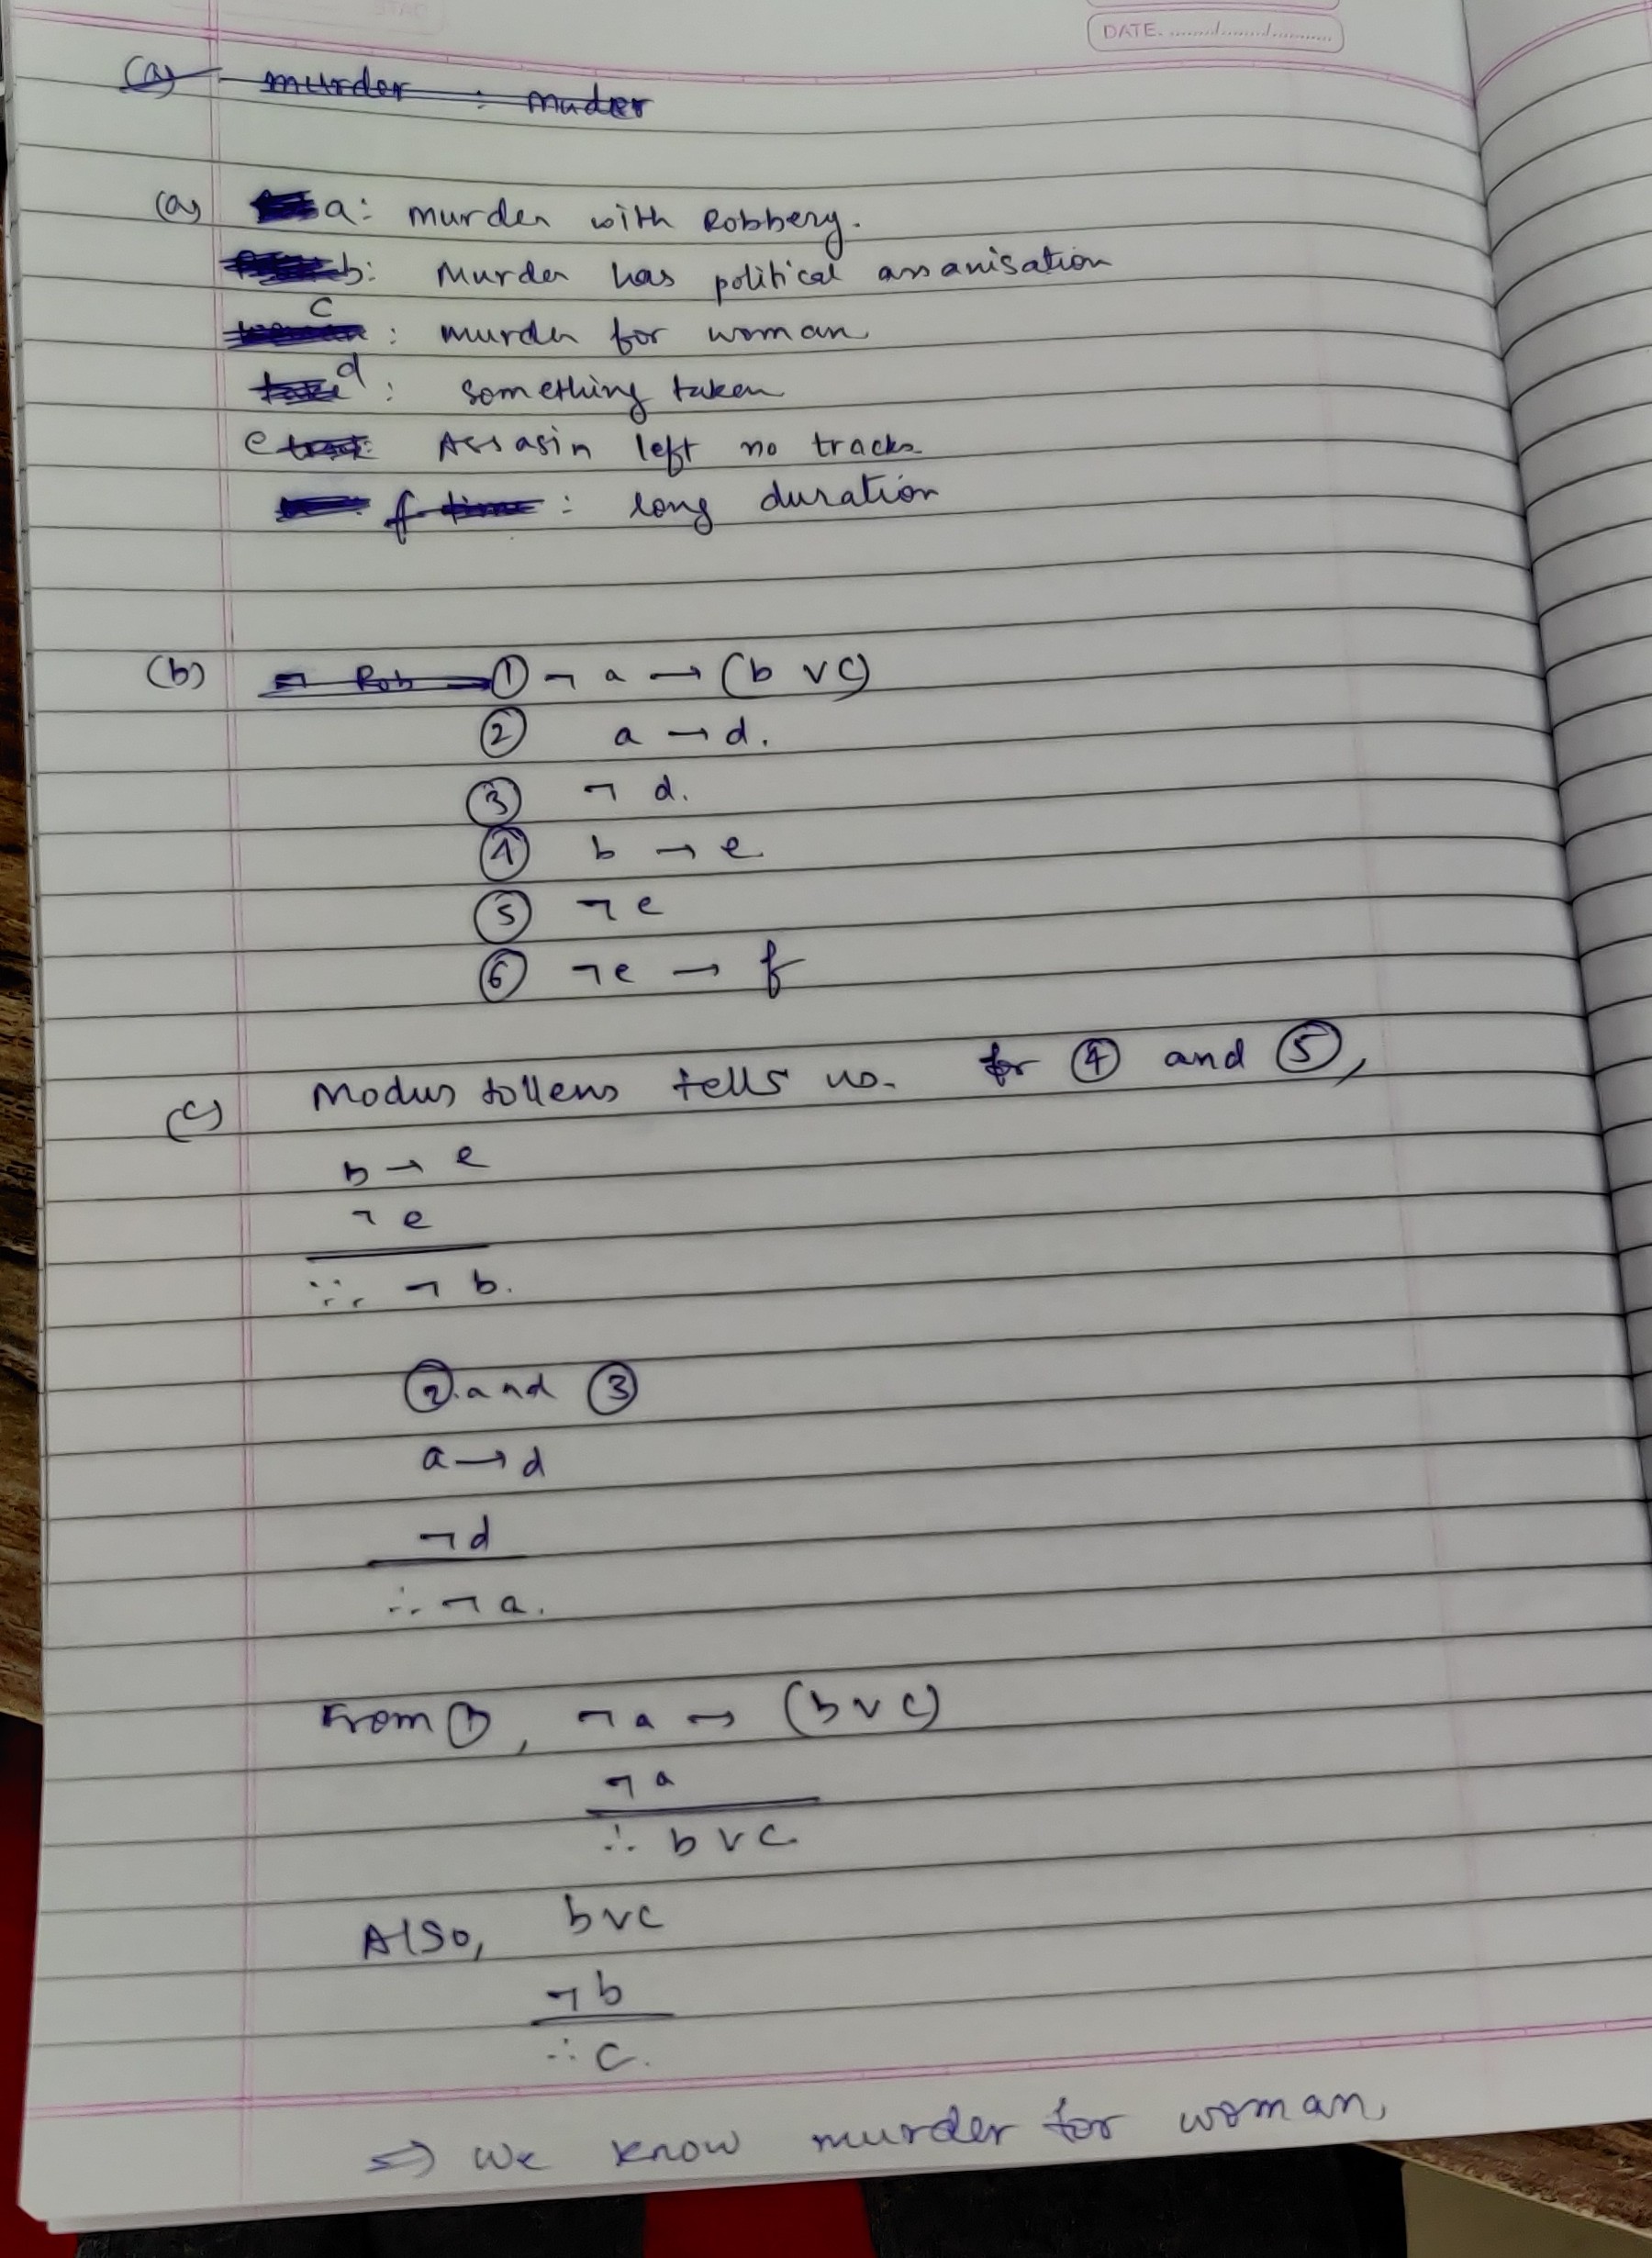 DATE.
(a) murder : mader
(a) a: murder with Robbery.
b: Murder has political assanisation
c : murder for woman
d : something taken
e Assasin left no tracks
f time : long duration
(b) ¬ Rob → ① ¬ a → (b ∨ c)
② a → d.
③ ¬ d.
④ b → e
⑤ ¬ e
⑥ ¬ e → f
(c) Modus tollens tells us. for ④ and ⑤,
b → e
¬ e
∴ ¬ b.
② and ③
a → d
¬ d
∴ ¬ a.
From ①, ¬ a → (b ∨ c)
¬ a
∴ b ∨ c.
Also, b ∨ c
¬ b
∴ c.
⇒ We know murder for woman,